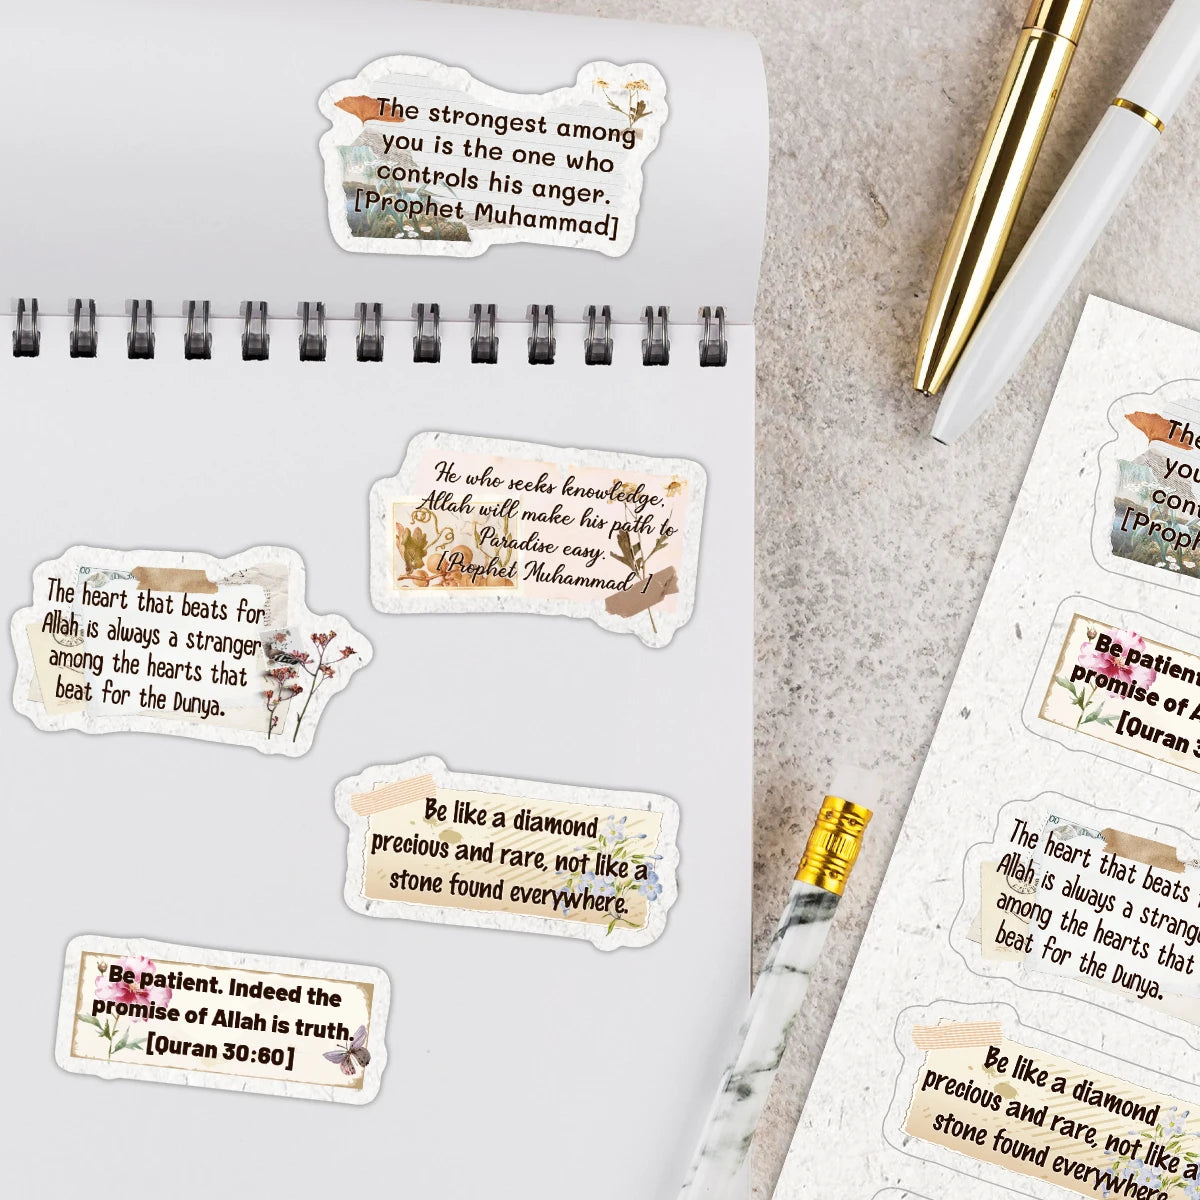 The strongest among
you is the one who
controls his anger.
[Prophet Muhammad]
He who seeks knowledge,
Allah will make his path to
Paradise easy.
[Prophet Muhammad ]
The heart that beats for
Allah is always a stranger
among the hearts that
beat for the Dunya.
Be like a diamond
precious and rare, not like a
stone found everywhere.
Be patient. Indeed the
promise of Allah is truth.
[Quran 30:60]
The
you
[Be patient
promise of
[Quran
The heart that beats
Allah is always a
among the hearts that
beat for the Dunya.
Be like a diamond
precious and rare, not like a
stone found everywhere